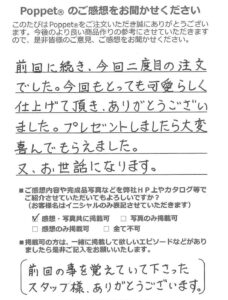 Poppet® のご感想をお聞かせください
このたびはPoppet®をご注文いただき誠にありがとうございま
す。今後のより良い商品作りの参考にさせていただきます
ので、是非皆様のご意見、ご感想をお聞かせください。
前回に続き、今回二度目の注文
でした。今回もとっても可愛らしく
仕上げて頂き、ありがとうござい
ました。プレゼントしましたら大変
喜んでもらえました。
又、お世話になります。
■ご感想内容や完成品写真などを弊社HP上やカタログ等で
ご紹介させていただいてもよろしいですか？
（お客様名はイニシャルのみ表記させていただきます）
☑感想・写真共に掲載可 □写真のみ掲載可
□感想のみ掲載可 □全て不可
■掲載可の方は、一緒に掲載して欲しいエピソードなどがあり
ましたら是非ご記入をお願いいたします。
前回の事を覚えていて下さった
スタッフ様、ありがとうございます。